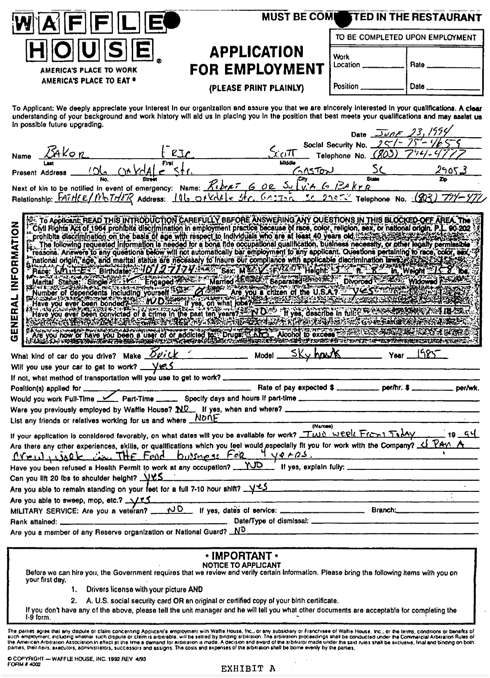 WAFFLE
HOUSE®
AMERICA'S PLACE TO WORK
AMERICA'S PLACE TO EAT®
MUST BE COMPLETED IN THE RESTAURANT
APPLICATION
FOR EMPLOYMENT
(PLEASE PRINT PLAINLY)
TO BE COMPLETED UPON EMPLOYMENT
Work
Location Rate
Position Date
To Applicant: We deeply appreciate your interest in our organization and assure you that we are sincerely interested in your qualifications. A clear
understanding of your background and work history will aid us in placing you in the position that best meets your qualifications and may assist us
in possible future upgrading.
Date June 23, 1994
Social Security No.
Name Baker Eric Scott Telephone No. (803)
Last First Middle
Present Address 106 Oakdale Str. Gaston SC 29053
No. Street State Zip
Next of kin to be notified in event of emergency: Name: Robert G or Sylvia G Baker
Relationship: Father/Mother Address: 106 Oakdale Str. Gaston SC Telephone No. (803)
GENERAL INFORMATION
To Applicant: READ THIS INTRODUCTION CAREFULLY BEFORE ANSWERING ANY QUESTIONS IN THIS BLOCKED-OFF AREA. The
Civil Rights Act of 1964 prohibits discrimination in employment practice because of race, color, religion, sex, or national origin. P.L. 90-202
prohibits discrimination on the basis of age with respect to individuals who are at least 40 years old
The following requested information is needed for a bona fide occupational qualification, business necessity, or other legally permissible
reasons. Answers to any questions below will not automatically bar employment to any applicant. Questions pertaining to race, color, sex,
national origin, age, and marital status are necessary to insure our compliance with applicable discrimination laws.
Race: Birthdate: Sex: M F Height: ft. in. Weight: lbs.
Marital Status: Single Engaged Married Separated Divorced Widowed
including yourself Are you a citizen of U.S.A.?
Have you ever been bonded? NO If yes, on what jobs?
Have you ever been convicted of a crime in the past ten years? NO If yes, describe in full:
Are you now or have you been a user of
What kind of car do you drive? Make Buick Model Skyhawk Year 1985
Will you use your car to get to work? yes
If not, what method of transportation will you use to get to work?
Position(s) applied for Rate of pay expected $ per/hr. $ per/wk.
Would you work Full-Time ✓ Part-Time Specify days and hours if part-time
Were you previously employed by Waffle House? NO If yes, when and where?
List any friends or relatives working for us and where None
(Names)
If your application is considered favorably, on what dates will you be available for work? Two week From Today 19 94
Are there any other experiences, skills, or qualifications which you feel would especially fit you for work with the Company?
work in The Food business For 4 years.
Have you been refused a Health Permit to work at any occupation? NO If yes, explain fully:
Can you lift 20 lbs to shoulder height? yes
Are you able to remain standing on your feet for a full 7-10 hour shift? yes
Are you able to sweep, mop, etc.? yes
MILITARY SERVICE: Are you a veteran? NO If yes, dates of service: Branch:
Rank attained: Date/Type of dismissal:
Are you a member of any Reserve organization or National Guard? NO
• IMPORTANT •
NOTICE TO APPLICANT
Before we can hire you, the Government requires that we review and verify certain information. Please bring the following items with you on
your first day.
1. Drivers license with your picture AND
2. A. U.S. social security card OR an original or certified copy of your birth certificate.
If you don't have any of the above, please tell the unit manager and he will tell you what other documents are acceptable for completing the
I-9 form.
The parties agree that any dispute or claim concerning Applicant's employment with Waffle House, Inc., or any subsidiary or Franchisee of Waffle House, Inc., or the terms, conditions or benefits of
such employment, including whether such dispute or claim is arbitrable, will be settled by binding arbitration. The arbitration proceedings shall be conducted under the Commercial Arbitration Rules of
the American Arbitration Association in effect at the time a demand for arbitration is made. A decision and award of the arbitrator made under the said rules shall be exclusive, final and binding on both
parties, their heirs, executors, administrators, successors and assigns. The costs and expenses of the arbitration shall be borne evenly by the parties.
© COPYRIGHT — WAFFLE HOUSE, INC. 1992 REV 4/93
FORM # 4002
EXHIBIT A